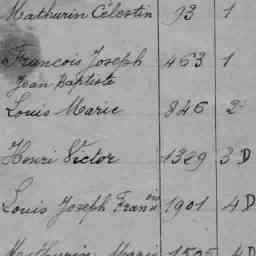 Mathurin Célestin 93 1
François Joseph 463 1
Jean Baptiste
Louis Marie 846 2
Henri Victor 1329 3 D
Louis Joseph Fran^ois 1901 4 D
Mathurin Marie 1505 4 D